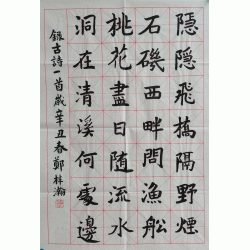 隱隱飛橋隔野煙
石磯西畔問漁船
桃花盡日隨流水
洞在清溪何處邊
錄古詩一首歲辛丑春鄭林瀚